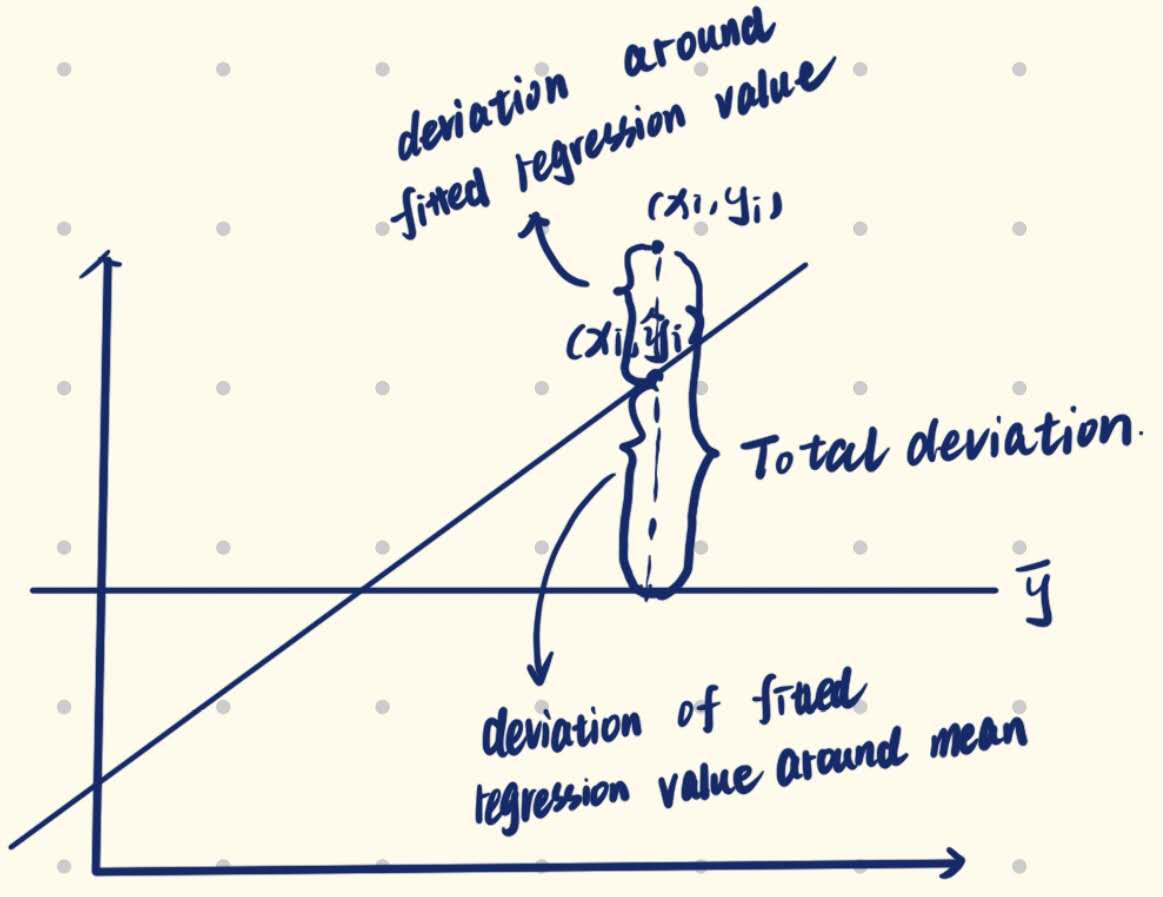 deviation around
fitted regression value
(xi, yi)
(xi, ŷi)
Total deviation.
y̅
deviation of fitted
regression value around mean